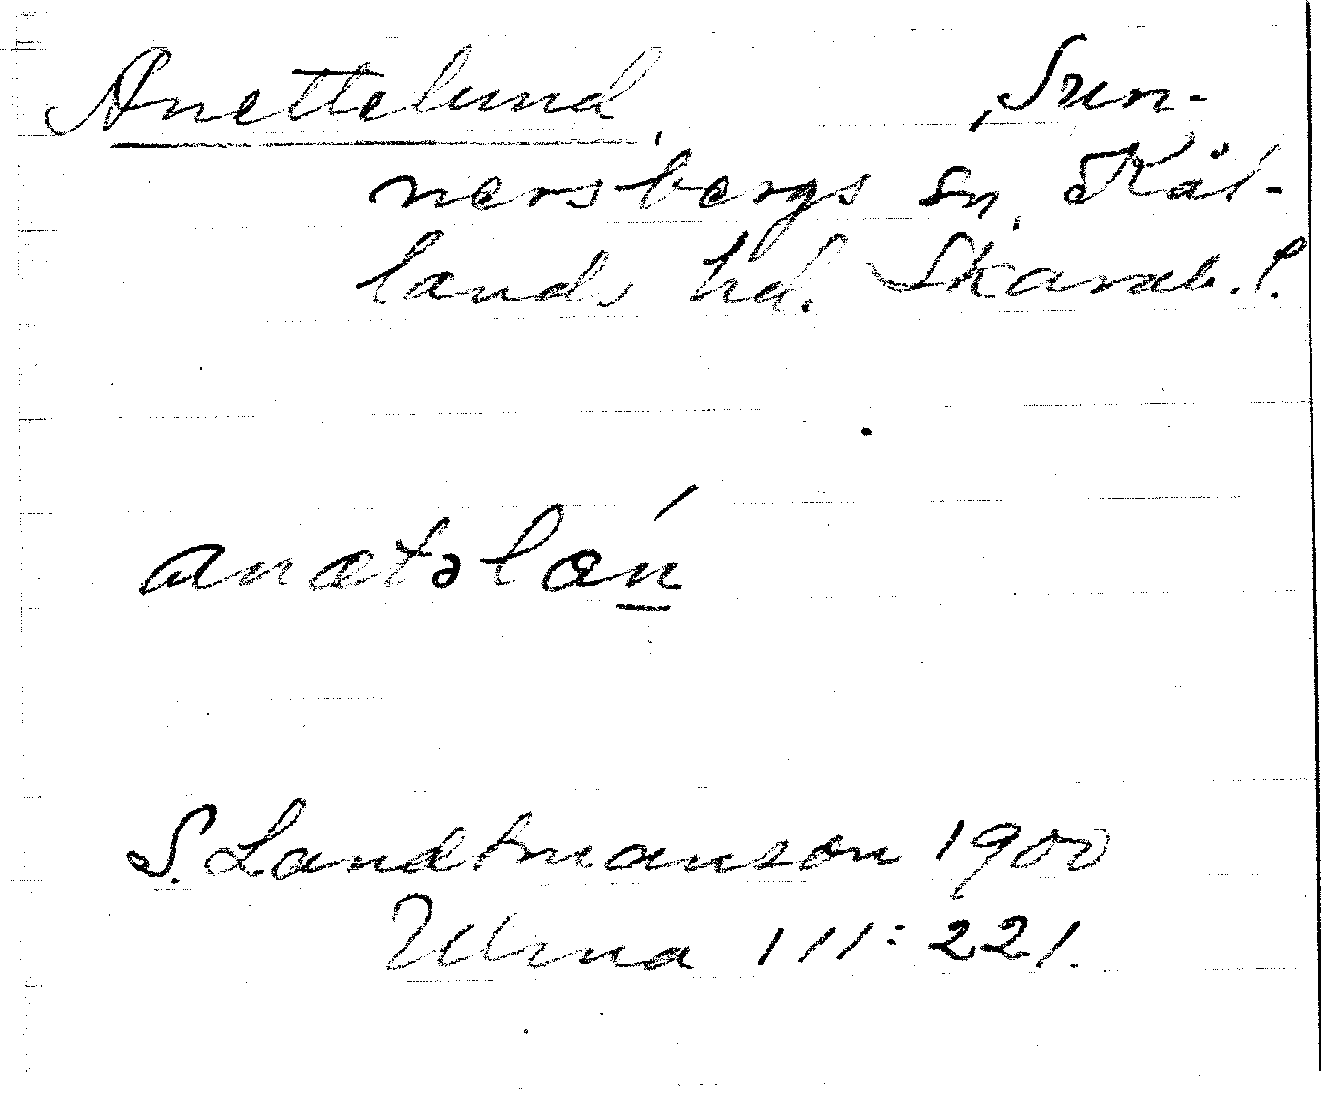 Anettelund, Sun-
nersbergs sn, Kål-
lands hd. Skarab. l.
anætəlæń
S. Landtmanson 1900
Ulma 111:221.